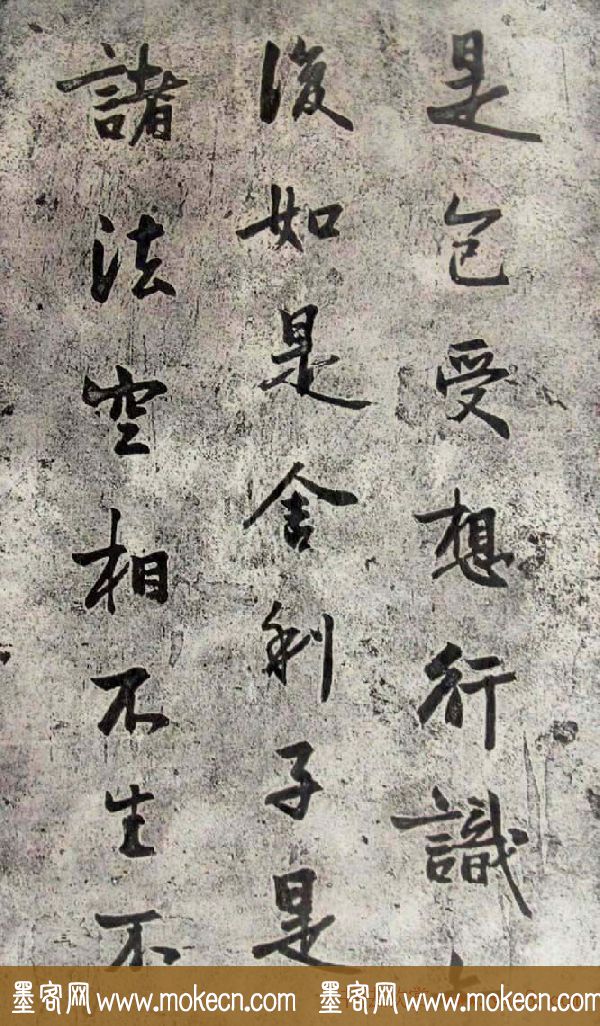 是色受想行識
復如是舍利子是
諸法空相不生不
墨客网 www.mokecn.com 墨客网 www.mokecn.com